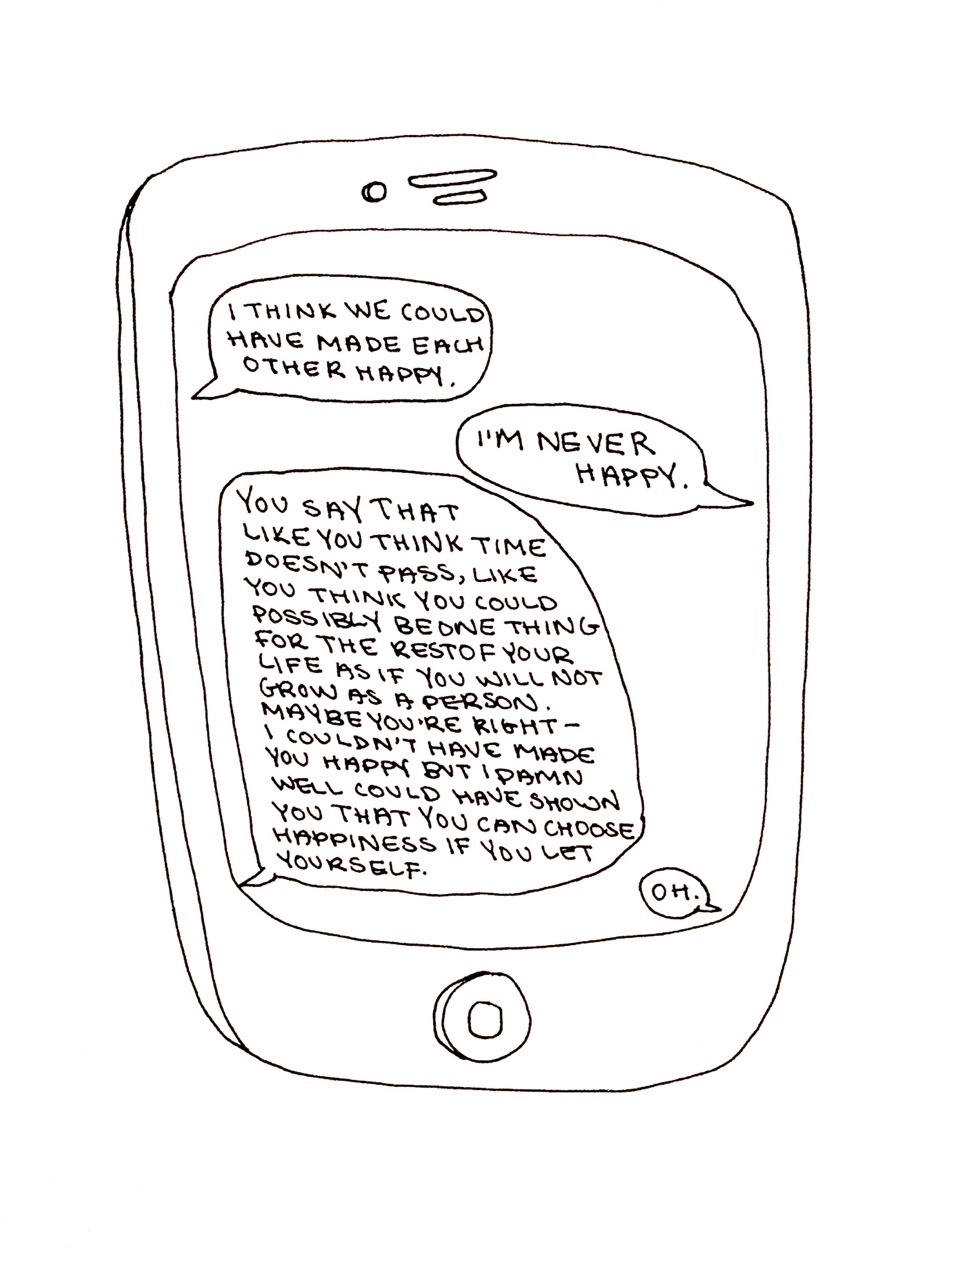 I THINK WE COULD
HAVE MADE EACH
OTHER HAPPY.
I'M NEVER
HAPPY.
YOU SAY THAT
LIKE YOU THINK TIME
DOESN'T PASS, LIKE
YOU THINK YOU COULD
POSSIBLY BE ONE THING
FOR THE REST OF YOUR
LIFE AS IF YOU WILL NOT
GROW AS A PERSON.
MAYBE YOU'RE RIGHT –
I COULDN'T HAVE MADE
YOU HAPPY BUT I DAMN
WELL COULD HAVE SHOWN
YOU THAT YOU CAN CHOOSE
HAPPINESS IF YOU LET
YOURSELF.
OH.